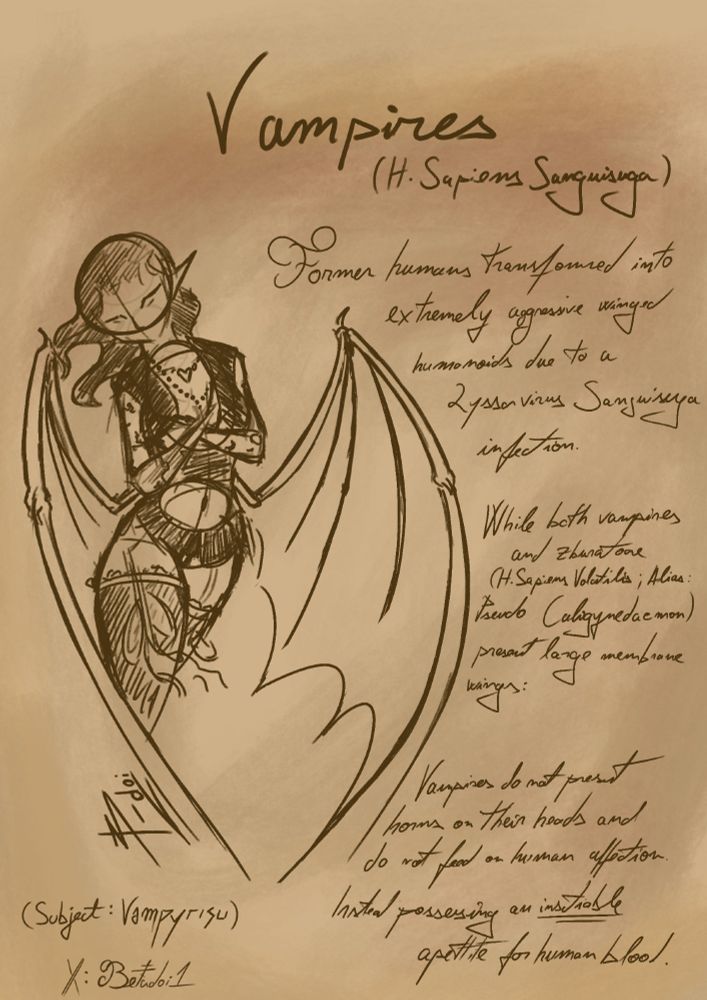 Vampires
(H. Sapiens Sanguisuga)
Former humans transformed into
extremely aggressive winged
humanoids due to a
Lyssavirus Sanguisuga
infection.
While both vampires
and zburatoare
(H. Sapiens Volatilis; Alias:
Pseudo Caligynedaemon)
present large membrane
wings:
Vampires do not present
horns on their heads and
do not feed on human affection.
Insted possessing an insatiable
apettite for human blood.
(Subject: Vampyrisu)
X: Betudoi1